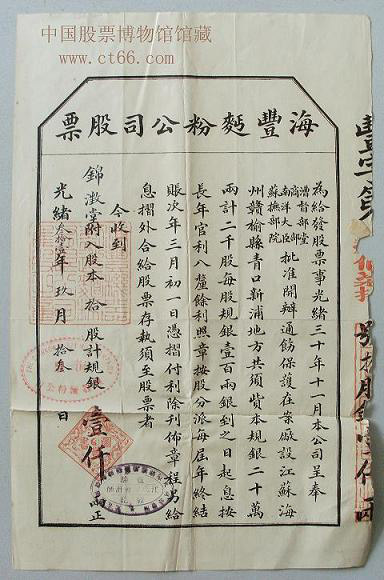 中国股票博物馆馆藏
www.ct66.com
海豐麪粉公司股票
為給發股票事光緒三十年十一月本公司呈奉
漕督部堂
商部
南洋大臣
蘇撫部院
批准開辦通飭保護在案廠設江蘇海
州贛榆縣青口新浦地方共須貲本規銀二十萬
兩計二千股每股規銀壹百兩銀到之日起息按
長年官利八釐餘利照章按股分派每屆年終結
賬次年三月初一日憑摺付利除刊佈章程另給
息摺外合給股票存執須至股票者
今收到
錦瀓堂附入股本 拾 股計規銀 壹仟 兩正
光緒叁拾壹年 玖月 拾叁 日